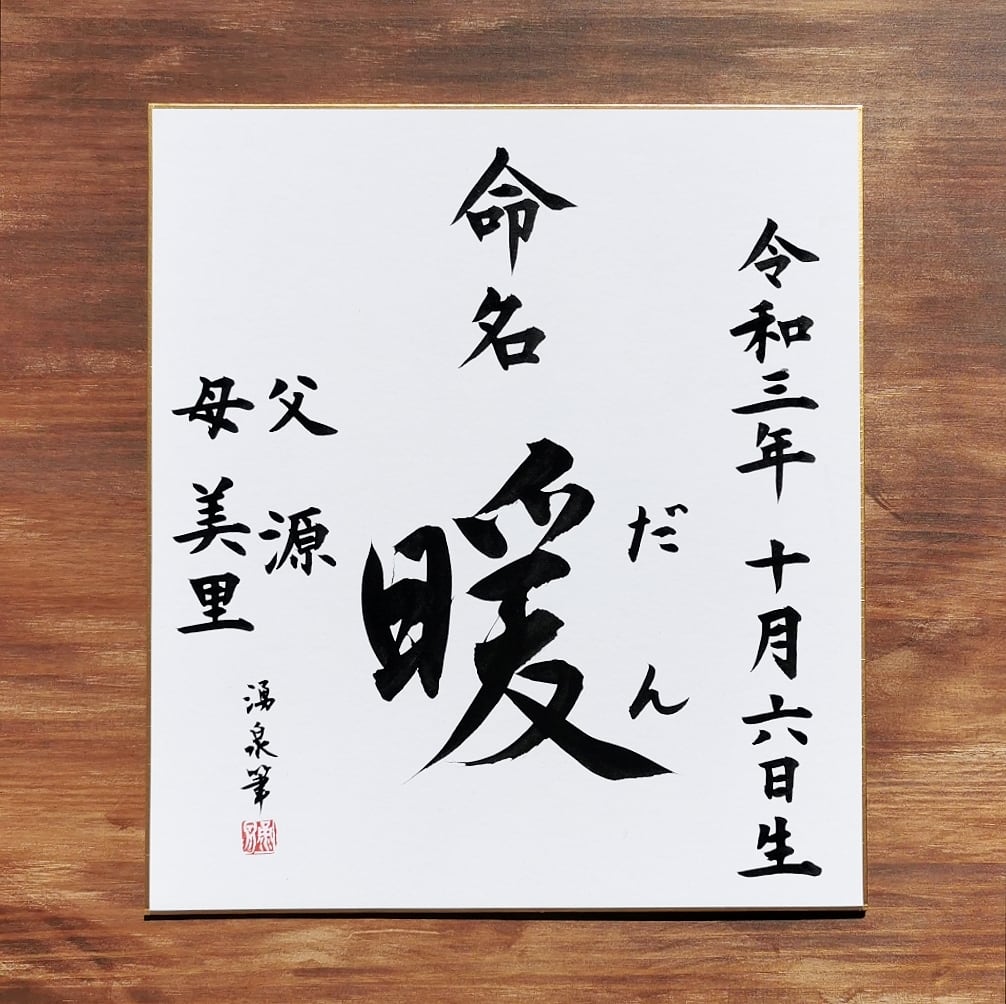 令和三年 十月六日生
命名
暖
だん
父 源
母 美里
湧泉筆